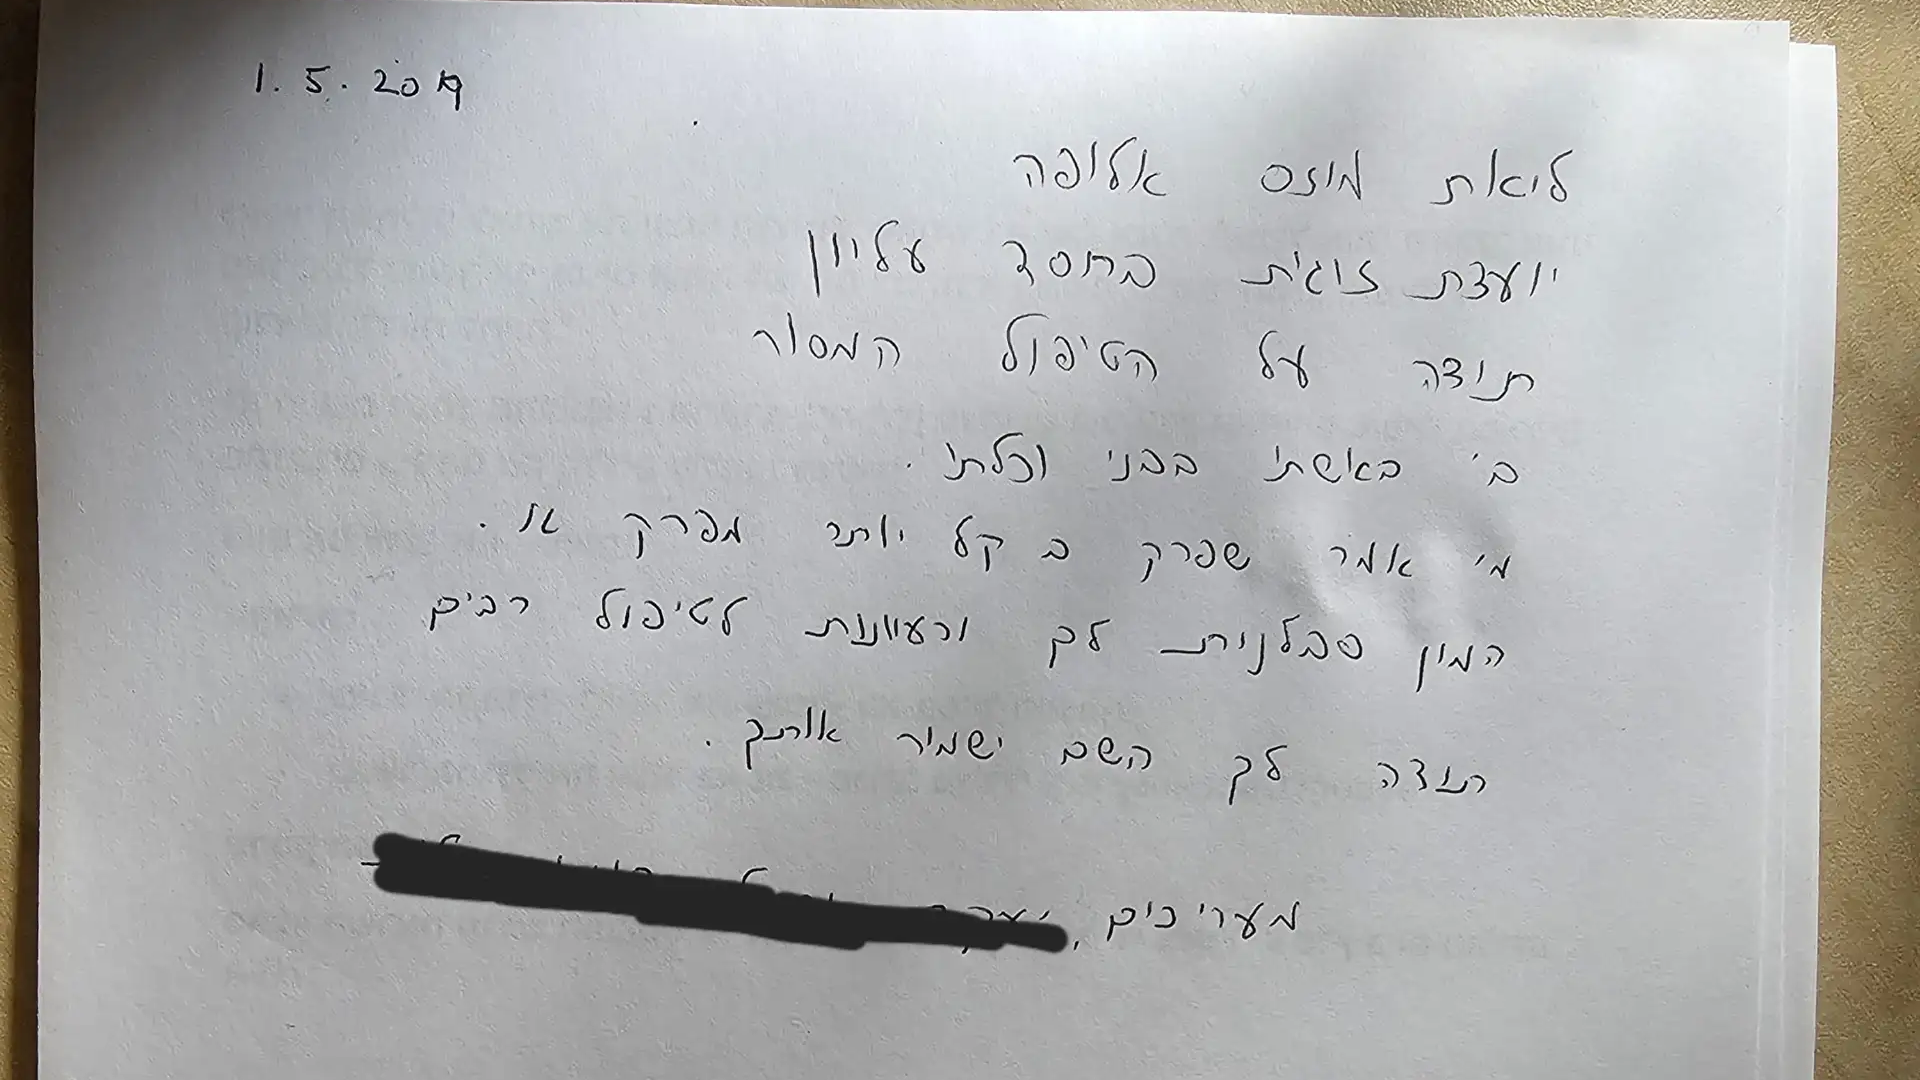 1.5.2019
ליאת מוזס אלופה
יועצת זוגית בחסד עליון
תודה על הטיפול המסור
בי באשתי בבני וכלתי.
מי אמר שפרק ב קל יותר מפרק א.
המון סבלנות לך ורעיונות לטיפול רבים
תודה לך השם ישמור אותך.
מעריכים,